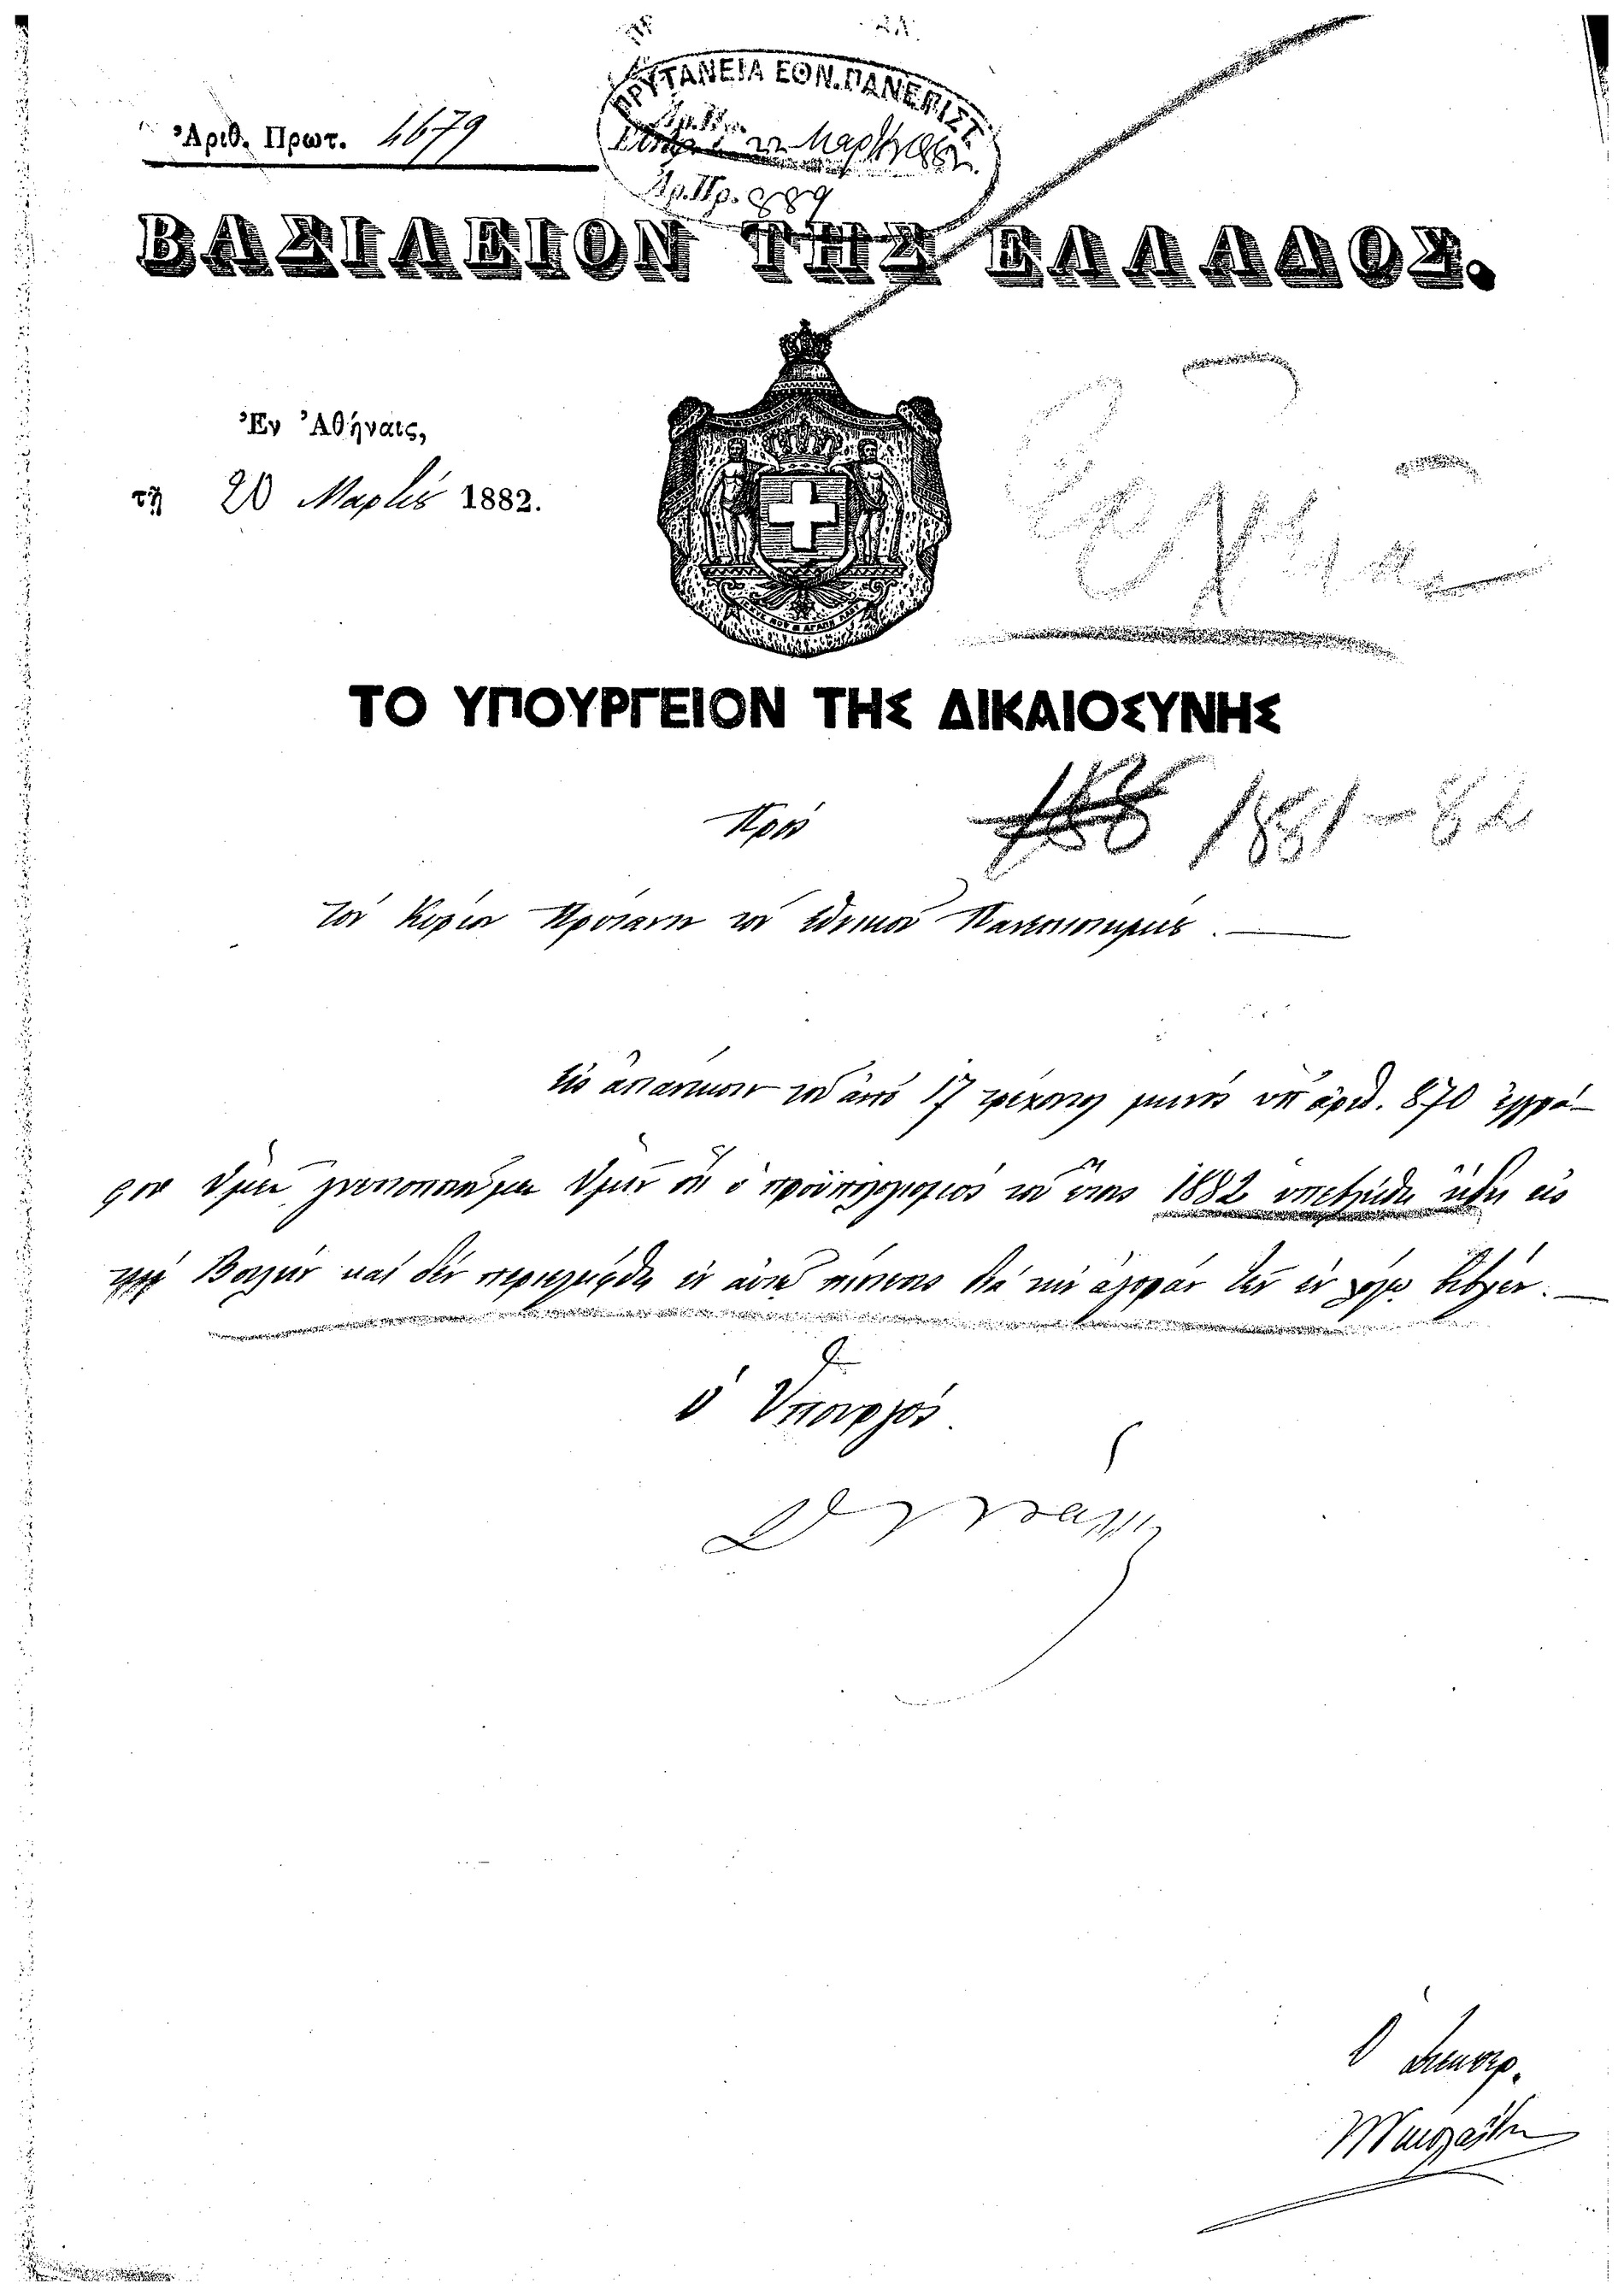 ΠΡΥΤΑΝΕΙΑ ΕΘΝ. ΠΑΝΕΠΙΣΤ.
22 Μαρτίου 1882
Ἀρ. Πρ. 889
Ἀριθ. Πρωτ. 4679
ΒΑΣΙΛΕΙΟΝ ΤΗΣ ΕΛΛΑΔΟΣ.
Ἐν Ἀθήναις,
τῇ 20 Μαρτίου 1882.
ΤΟ ΥΠΟΥΡΓΕΙΟΝ ΤΗΣ ΔΙΚΑΙΟΣΥΝΗΣ
1881-82
Πρὸς
τὸν Κύριον Πρύτανιν τοῦ Ἐθνικοῦ Πανεπιστημίου.
Εἰς ἀπάντησιν τοῦ ἀπὸ 17 τρέχοντος μηνὸς ὑπ' ἀριθ. 870 ἐγγρά-
φου Ὑμῶν γνωστοποιοῦμεν Ὑμῖν ὅτι ὁ προϋπολογισμὸς τοῦ ἔτους 1882 ὑπεβλήθη ἤδη εἰς
τὴν Βουλὴν καὶ δὲν περιελήφθη ἐν αὐτῷ πίστωσις διὰ τὴν ἀγορὰν τῶν ἐν λόγῳ βιβλίων.
Ὁ Ὑπουργὸς